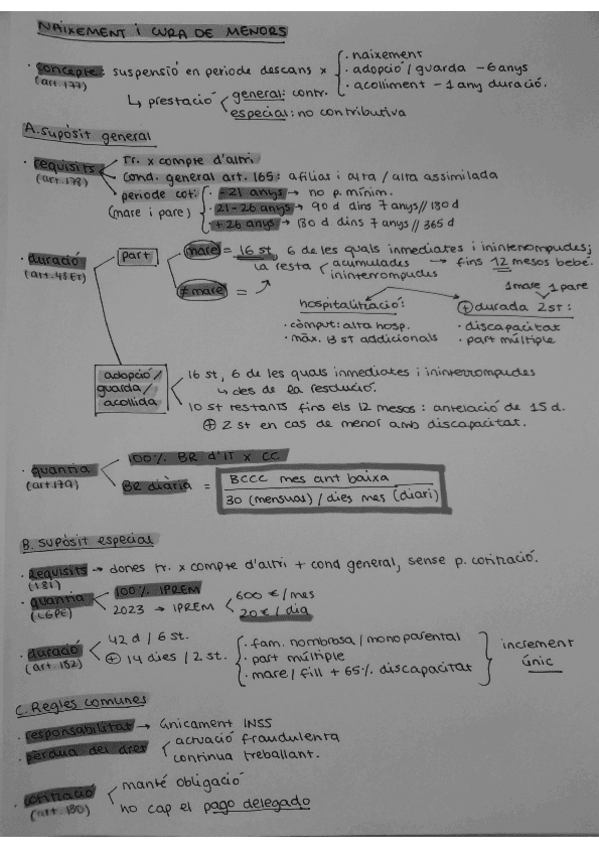 NAIXEMENT I CURA DE MENORS
· concepte: suspensió en periode descans x · naixement
(art. 177) · adopció / guarda -6 anys
· acolliment -1 any duració.
↳ prestació general: contr.
especial: no contributiva
A. Supòsit general
· requisits Tr. x compte d'altri
(art. 178) Cond. general art. 165: afiliar i alta / alta assimilada
periode cot. · -21 anys → no p. mínim.
(mare i pare) · 21-26 anys → 90 d dins 7 anys // 180 d
· +26 anys → 180 d dins 7 anys // 365 d
· duració part mare = 16 st, 6 de les quals inmediates i ininterrompudes;
(art. 48 ET) la resta acumulades → fins 12 mesos bebé.
ininterrompudes
≠ mare =
1 mare 1 pare
hospitalització: ⊕ durada 2 st:
· còmput: alta hosp. · discapacitat
· màx. 13 st addicionals · part múltiple
adopció / guarda / acollida
16 st, 6 de les quals inmediates i ininterrompudes
↳ des de la resolució.
10 st restants fins els 12 mesos: antelació de 15 d.
⊕ 2 st en cas de menor amb discapacitat.
· quantia 100% BR d'IT x CC
(art. 179) BR diària = BCCC mes ant baixa
30 (mensual) / dies mes (diari)
B. Supòsit especial
· Requisits → dones tr. x compte d'altri + cond general, sense p. cotització.
(181)
· quantia 100% IPREM
(LGPE) 2023 → IPREM 600 €/mes
20 € / dia
· duració 42 d / 6 st.
(art. 182) ⊕ 14 dies / 2 st. · fam. nombrosa / monoparental
· part múltiple
· mare / fill + 65% discapacitat
increment únic
C. Regles comunes
· responsabilitat → únicament INSS
· pèrdua del dret actuació fraudulenta
continua treballant.
· cotització manté obligació
(art. 180) no cap el pago delegado